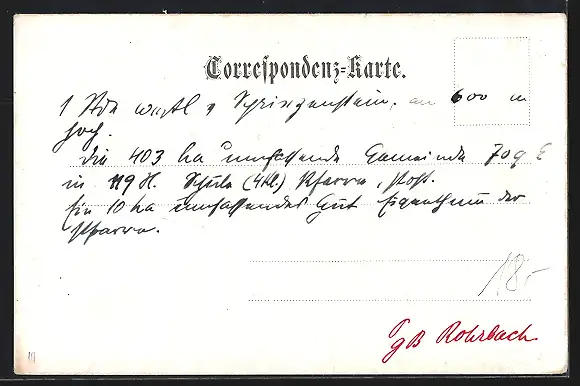 Correspondenz-Karte.
1 Stde westl v Sprinzenstein, an 600 m
hoch.
die 403 ha umfassende Gemeinde 709 E
in 119 H. Schule (4kl.) Pfarre, Post.
Ein 10 ha umfassendes Gut Eigenthum der
Pfarre.
18.-
gB Rohrbach